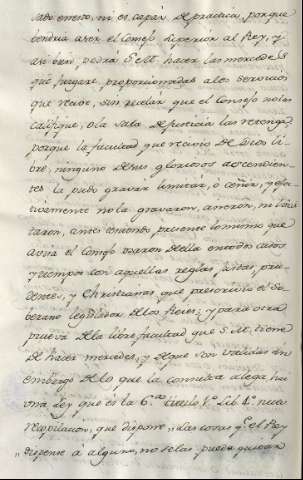 este exceso, ni es capaz de practica, porque
vendria a ser el Consejo superior al Rey, y
aun bien, podrá S. M. hacer las mercedes
que juzgare, proporcionadas a los servicios
que recive, sin recelar que el Consejo no las
califique, o la sala de justicia las retenga
porque la facultad que recivio de Dios li-
bre, ninguno de sus gloriosos ascendien-
tes la pudo gravar limitar, o ceñir, y efec-
tivamente no la gravaron, ciñeron, ni limi-
taron, antes teniendo presente lo mismo que
avisa el Consejo usaron de ella en todos casos
y tiempos con aquellas reglas, justas, pru-
dentes, y Christianas, que prescrivio el So-
berano legislador de los Reies, y para otra
prueva de la libre facultad que S. M. tiene
de hacer mercedes, y de que son validas sin
embargo de lo que la consulta alega hai
una Ley que es la 6.ª titulo 1.º Lib. 4.º nueva
recopilacion, que dispone, las cosas q.e el Rey
dispense á alguno, no se las pueda quitar